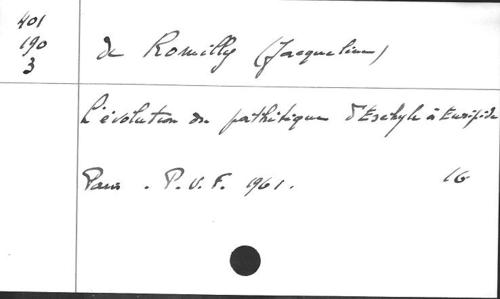 401
190
3
de Romilly (Jacqueline)
L'évolution du pathétique d'Eschyle à Euripide
Paris. P.U.F. 1961. 16